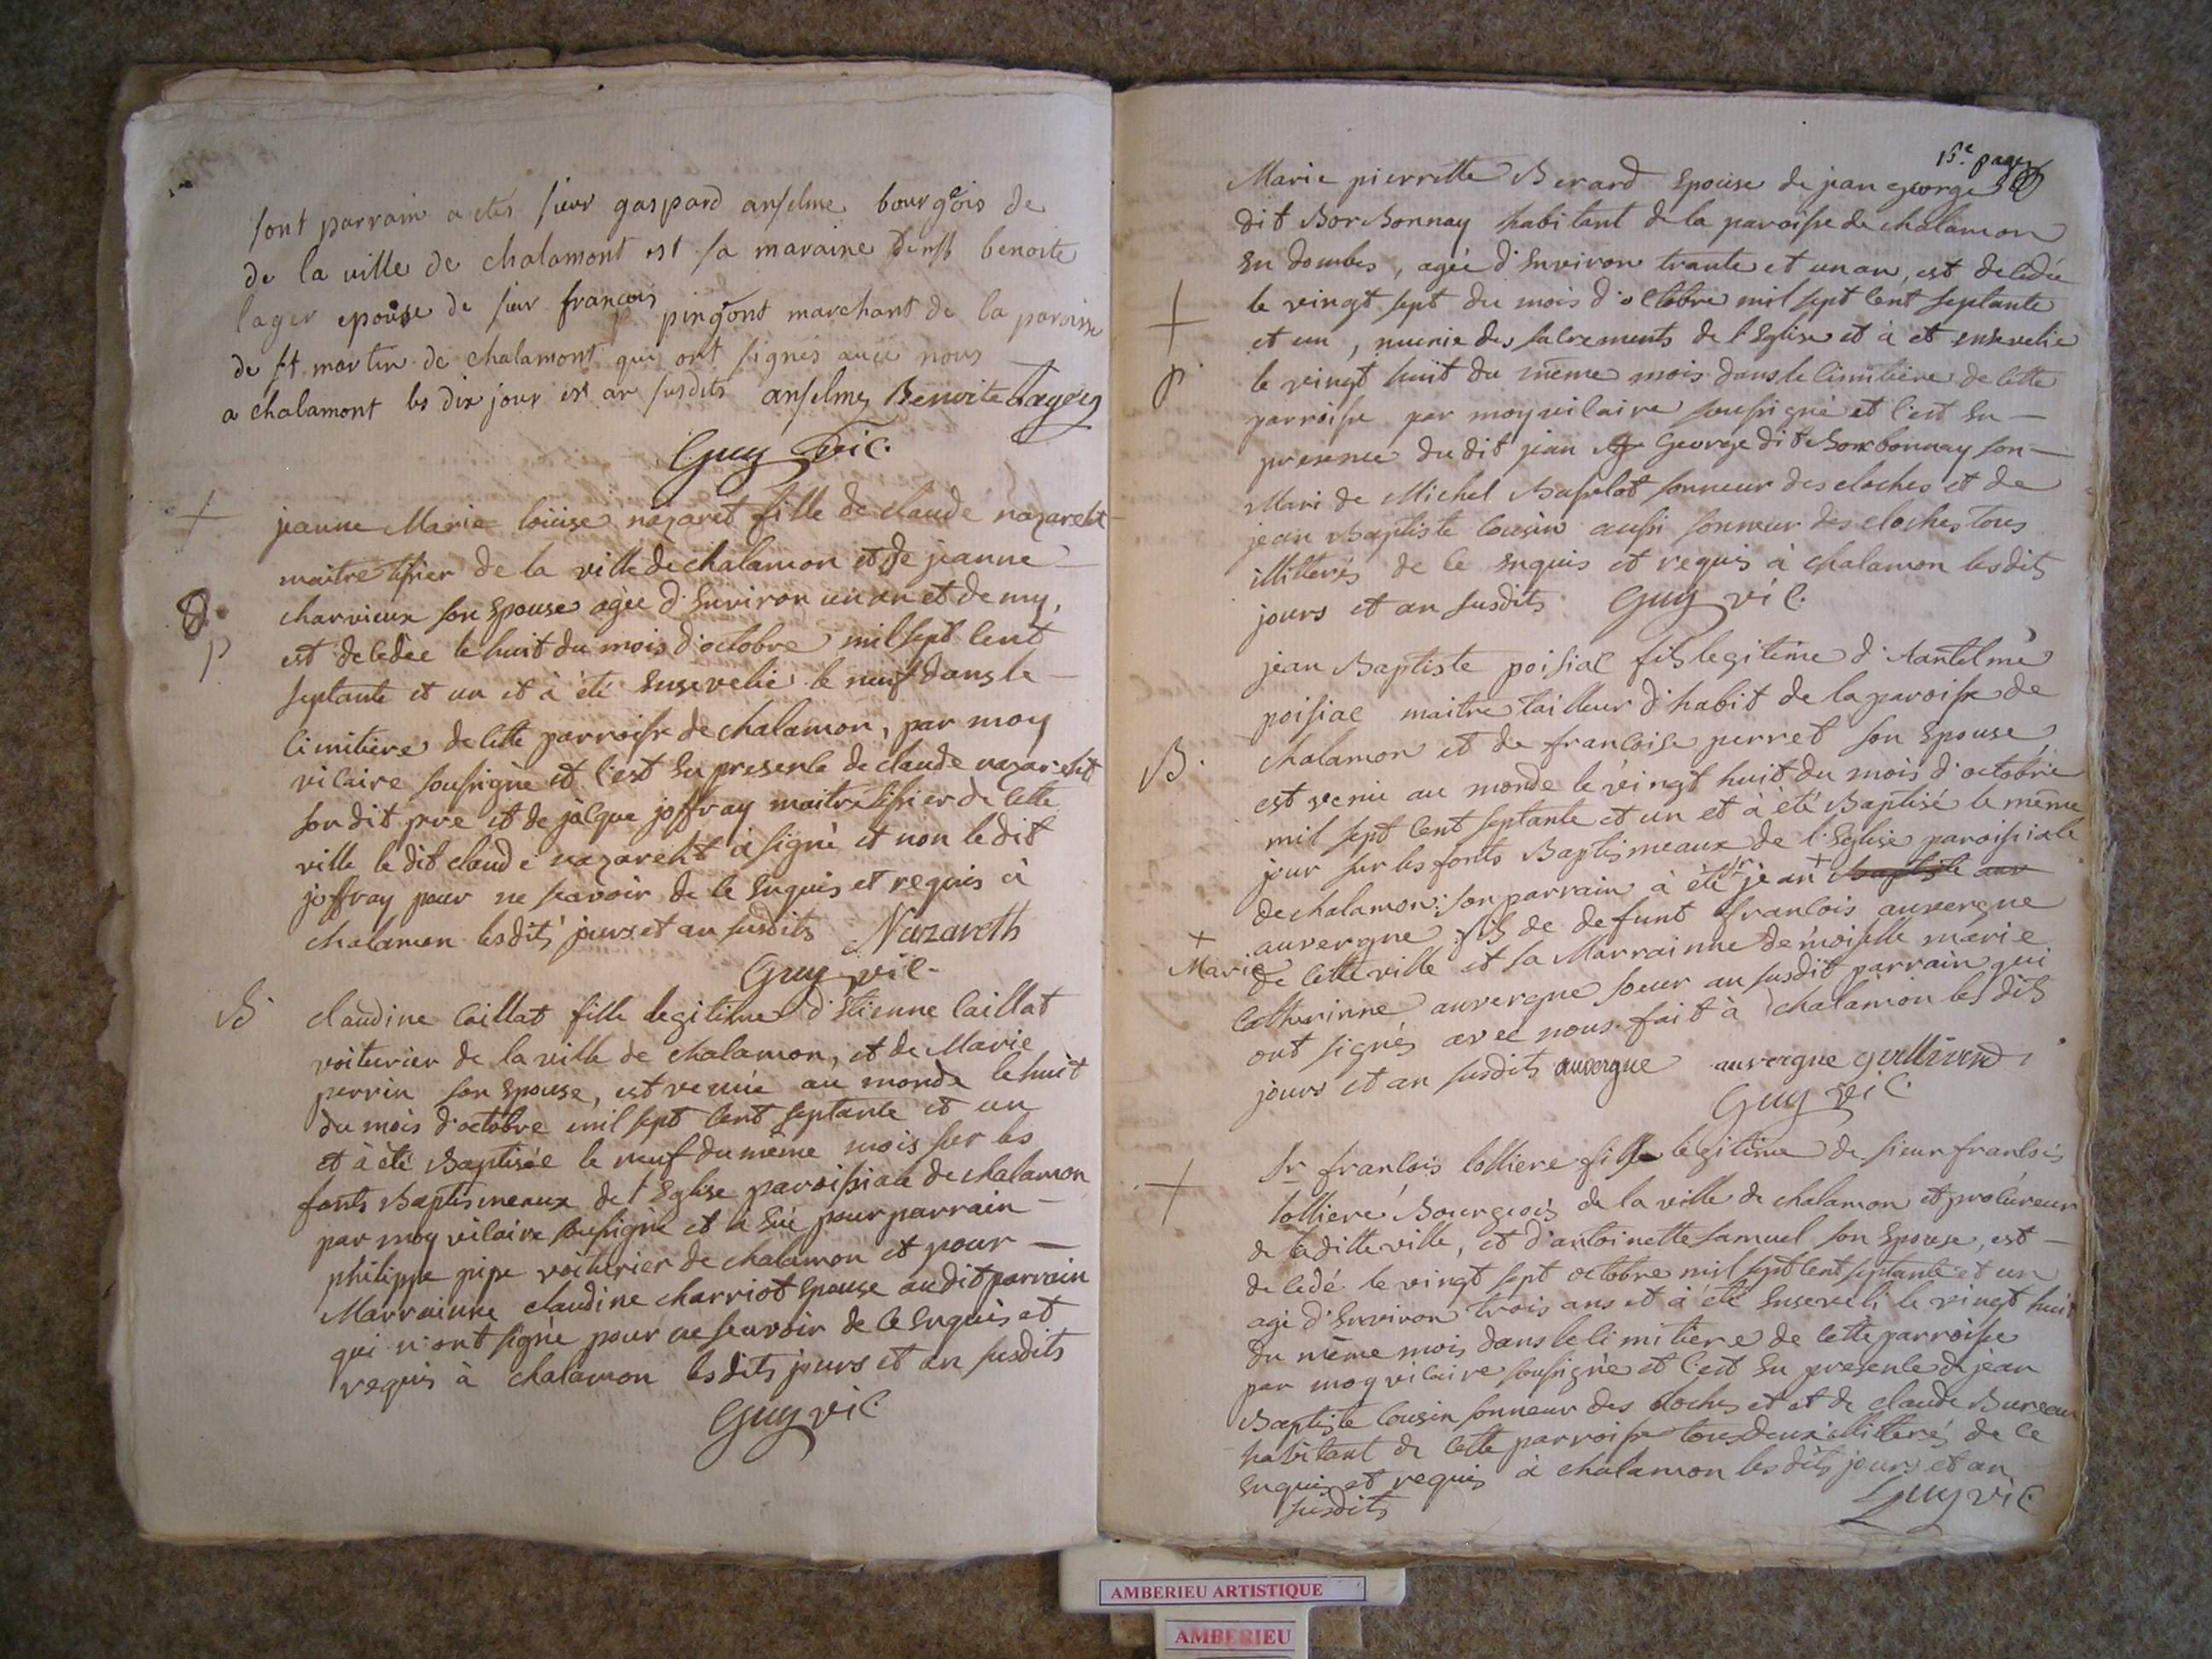 sont parrain a etés sieur gaspard anselme bourgois de
de la ville de chalamont est sa maraine benoite
lager epouse de sieur francois pingont marchant de la paroisse
de st martin de chalamont qui ont signés avec nous
a chalamont les dix jour est an susdits anselme Benoite Lager
Guy vic.
+ jeanne Marie loüise nazaret fille de claude nazareht
maitre tissier de la ville de chalamon et de jeanne
charvieux son Epouse agée d'Environ un an et demy,
est decedée le huit du mois d'octobre mil sept cent
p septante et un et à été Ensevelie le neuf dans le
cimitiere de cette parroisse de chalamon, par moy
vicaire soussigné et c'est En presence de claude nazareht
son dit pere et de jacque joffray maitre tissier de cette
ville le dit claude nazareht à signé et non le dit
joffray pour ne scavoir de ce Enquis et requis à
chalamon lesdits jours et an susdits Nazareth
Guy vic.
B claudine Caillat fille legitime d'Etienne Caillat
voiturier de la ville de chalamon, et de Marie
perrin son Epouse, est venüe au monde le huit
du mois d'octobre mil sept cent septante et un
et à été Baptisée le neuf du même mois sur les
fonts Baptismeaux de l'Eglise paroissiale de chalamon
par moy vicaire soussigné et à Eüe pour parrain
philippe pipe voiturier de chalamon et pour
Marrainne claudine charriot Epouse audit parrain
qui n'ont signé pour ne scavoir de ce Enquis et
requis à chalamon lesdits jours et an susdits
Guy vic.
15e page
Marie pierrette Berard Epouse de jean george
dit BorBonnay habitant de la paroisse de chalamon
En dombes, agée d'Environ trante et un an, est decedée
+ le vingt sept du mois d'octobre mil sept cent septante
et un, munie des sacrements de l'Eglise et à et ensevelie
p le vingt huit du même mois dans le cimitière de cette
parroisse par moy vicaire soussigné et c'est En
presence du dit jean George dit Borbonnay son
Mari de Michel Basselot sonneur des cloches et de
jean Baptiste Cousin aussi sonneur des cloches tous
illitterés de ce Enquis et requis à chalamon lesdits
jours et an susdits Guy vic.
jean Baptiste poisiac fils legitime d'Aantelme
poisiac maitre tailleur d'habit de la paroisse de
B. chalamon et de francoise perret son Epouse
est venu au monde le vingt huit du mois d'octobre
mil sept cent septante et un et à été Baptisé le même
jour sur les fonts Baptismeaux de l'Eglise paroissiale
de chalamon: son parrain à été sr jean + Baptiste auv
auvergne fils de defunt francois auvergne
+ Marie de cette ville et sa Marrainne demoiselle marie
Catherinne auvergne soeur au susdit parrain qui
ont signés avec nous fait à chalamon les dits
jours et an susdits auvergne auvergne
Guy vic
+ Sr francois lolliere fils legitime de sieur francois
lolliere Bourgeois de la ville de chalamon et procureur
de laditte ville, et d'antoinette samuel son Epouse, est
decedé le vingt sept octobre mil sept cent septante et un
agé d'Environ trois ans et à été Enseveli le vingt huit
du même mois dans le cimitiere de cette parroisse
par moy vicaire soussigné et c'est En presence de jean
Baptiste Cousin sonneur des cloches et et de claude Bureau
habitant de cette parroisse tous deux illitterés de ce
Enquis et requis à chalamon les dits jours et an
susdits Guy vic
AMBERIEU ARTISTIQUE
AMBERIEU